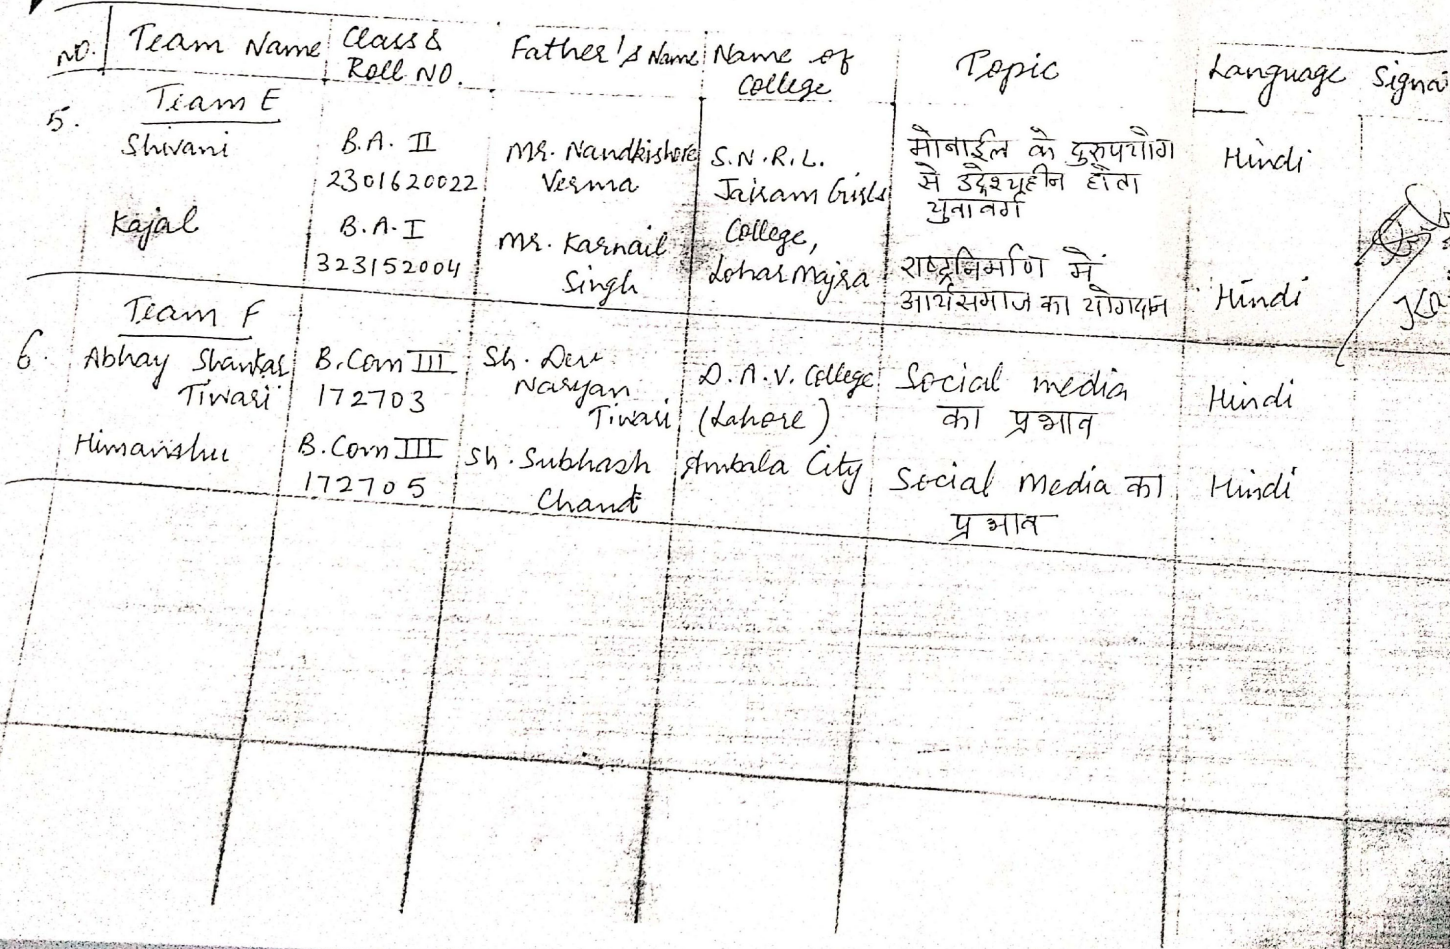 NO. Team Name Class & Roll NO. Father's Name Name of College Topic Language
5. Team E
Shivani B.A. II 2301620022 Mr. Nandkishore Verma S.N.R.L. Jairam Girls College, Lohar Majra मोबाईल के दुरुपयोग से उद्देश्यहीन होता युवा वर्ग Hindi
Kajal B.A. I 323152004 Mr. Karnail Singh राष्ट्रनिर्माण में आर्यसमाज का योगदान Hindi
Team F
6. Abhay Shankar Tiwari B.Com III 172703 Sh. Dev Naryan Tiwari D.A.V. College (Lahore) Ambala City Social media का प्रभाव Hindi
Himanshu B.Com III 172705 Sh. Subhash Chand Social media का प्रभाव Hindi